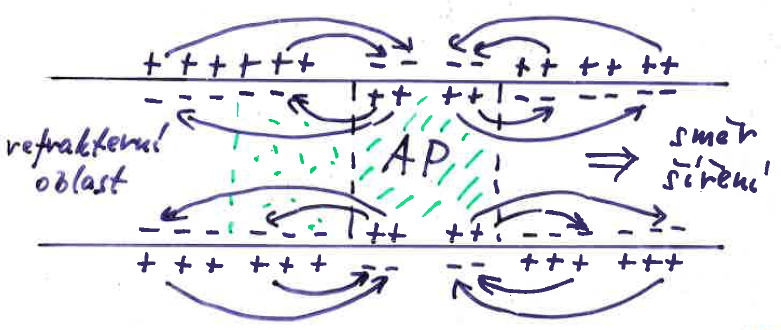 + + + + + + - - - - + + + + + +
- - - - - - - + + + + - - - - - -
refrakterní
oblast
AP
⇒ směr
šíření
- - - - - - - + + + + - - - - - - -
+ + + + + + - - - - + + + + + +